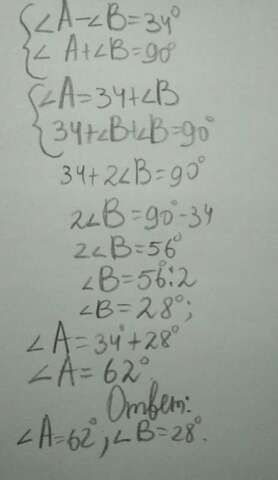 ∠A-∠B=34°
∠A+∠B=90°
∠A=34+∠B
34+∠B+∠B=90°
34+2∠B=90°
2∠B=90°-34
2∠B=56°
∠B=56°:2
∠B=28°;
∠A=34°+28°
∠A=62°
Ответ:
∠A=62°; ∠B=28°.